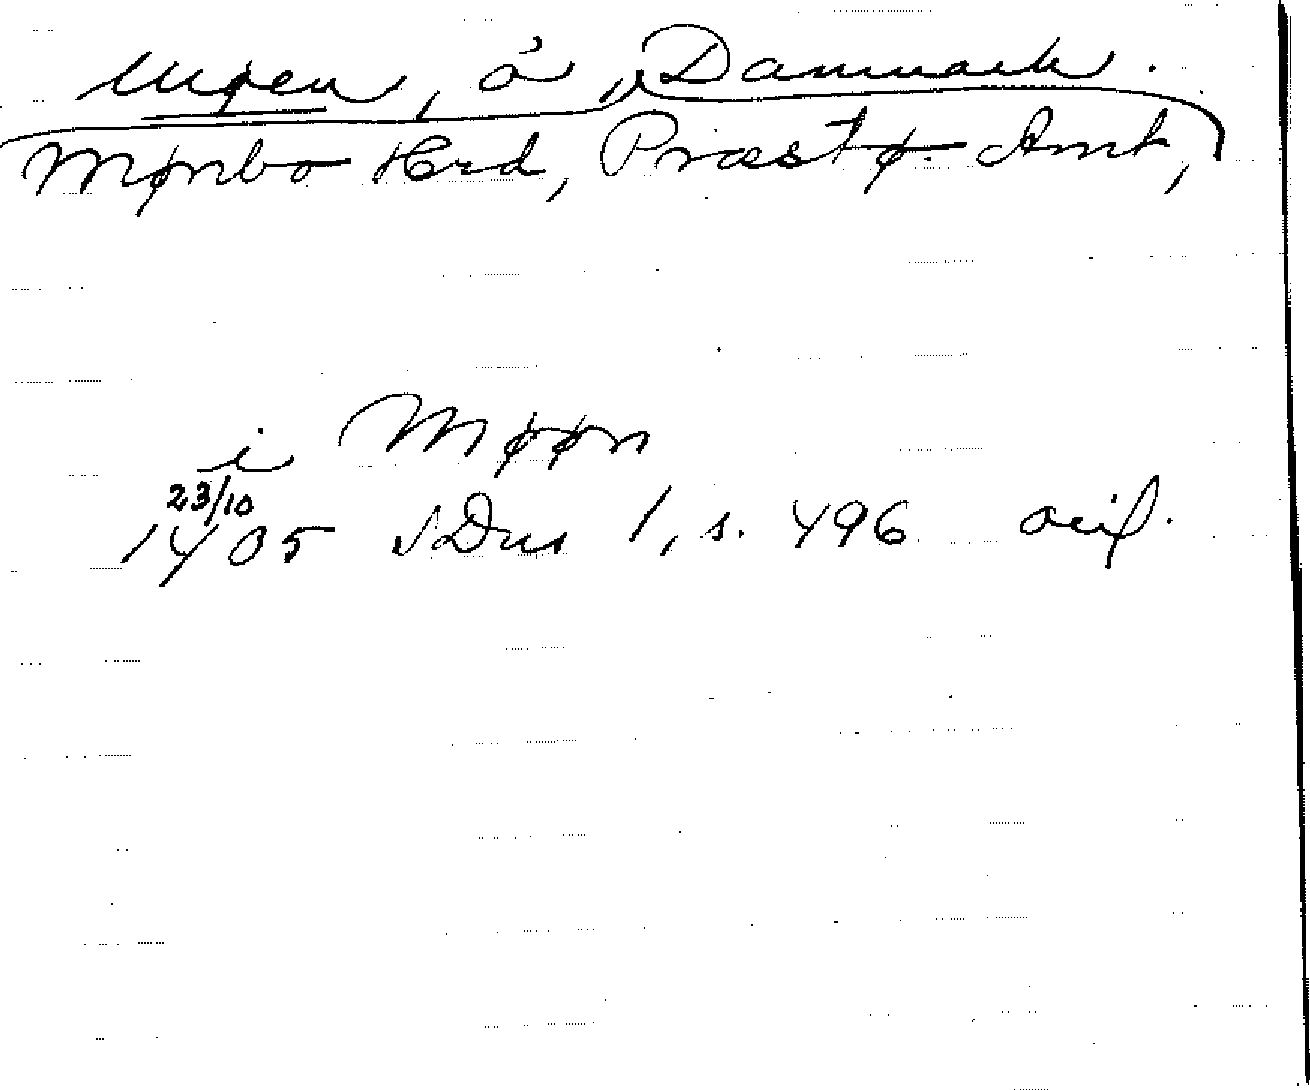 Møen, ö, Danmark.
Mønbo Hrd, Præstø Amt,
i Møøn
23/10
1405 SDns 1, s. 496 orig.